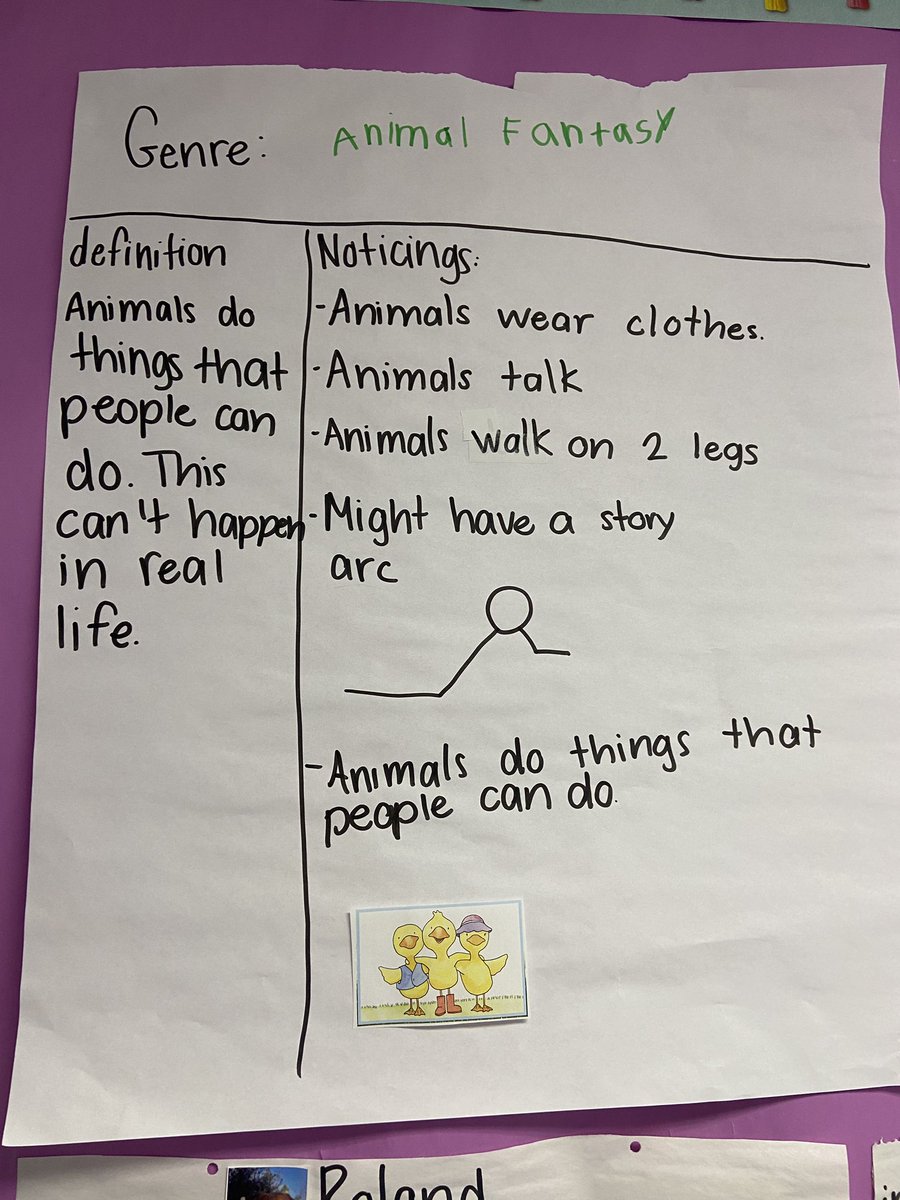 Genre: Animal Fantasy
definition
Animals do
things that
people can
do. This
can't happen
in real
life.
Noticings:
-Animals wear clothes.
-Animals talk
-Animals walk on 2 legs
-Might have a story
arc
-Animals do things that
people can do.
Poland